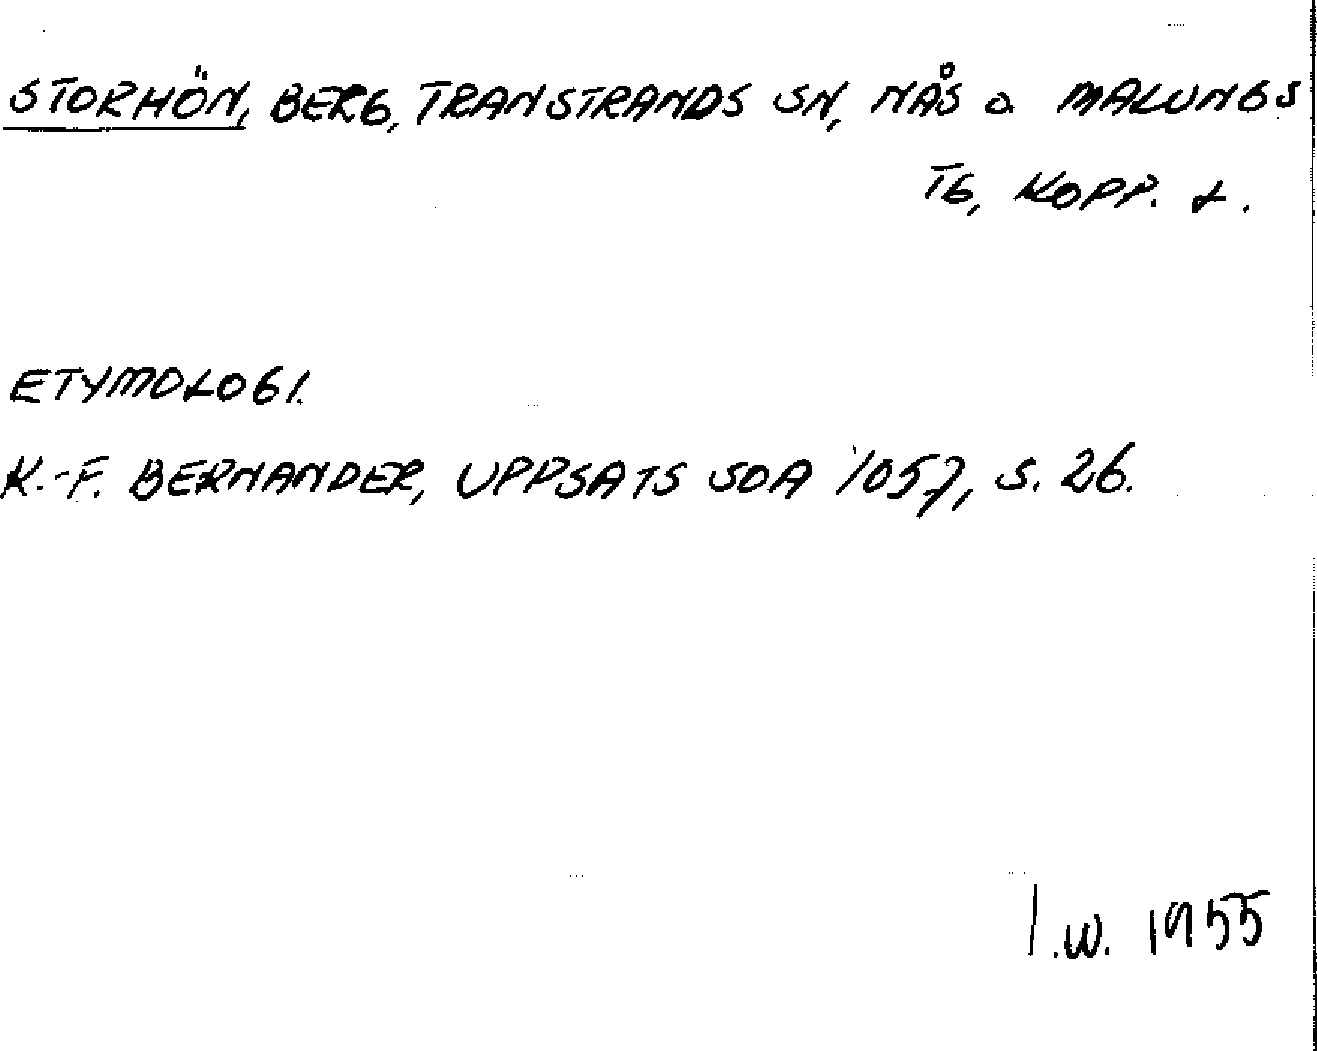 STORHÖN, BERG, TRANSTRANDS SN, NÅS O MALUNGS
TG, KOPP. L.
ETYMOLOGI.
K.-F. BERNANDER, UPPSATS SOA 1057, S. 26.
I.W. 1955